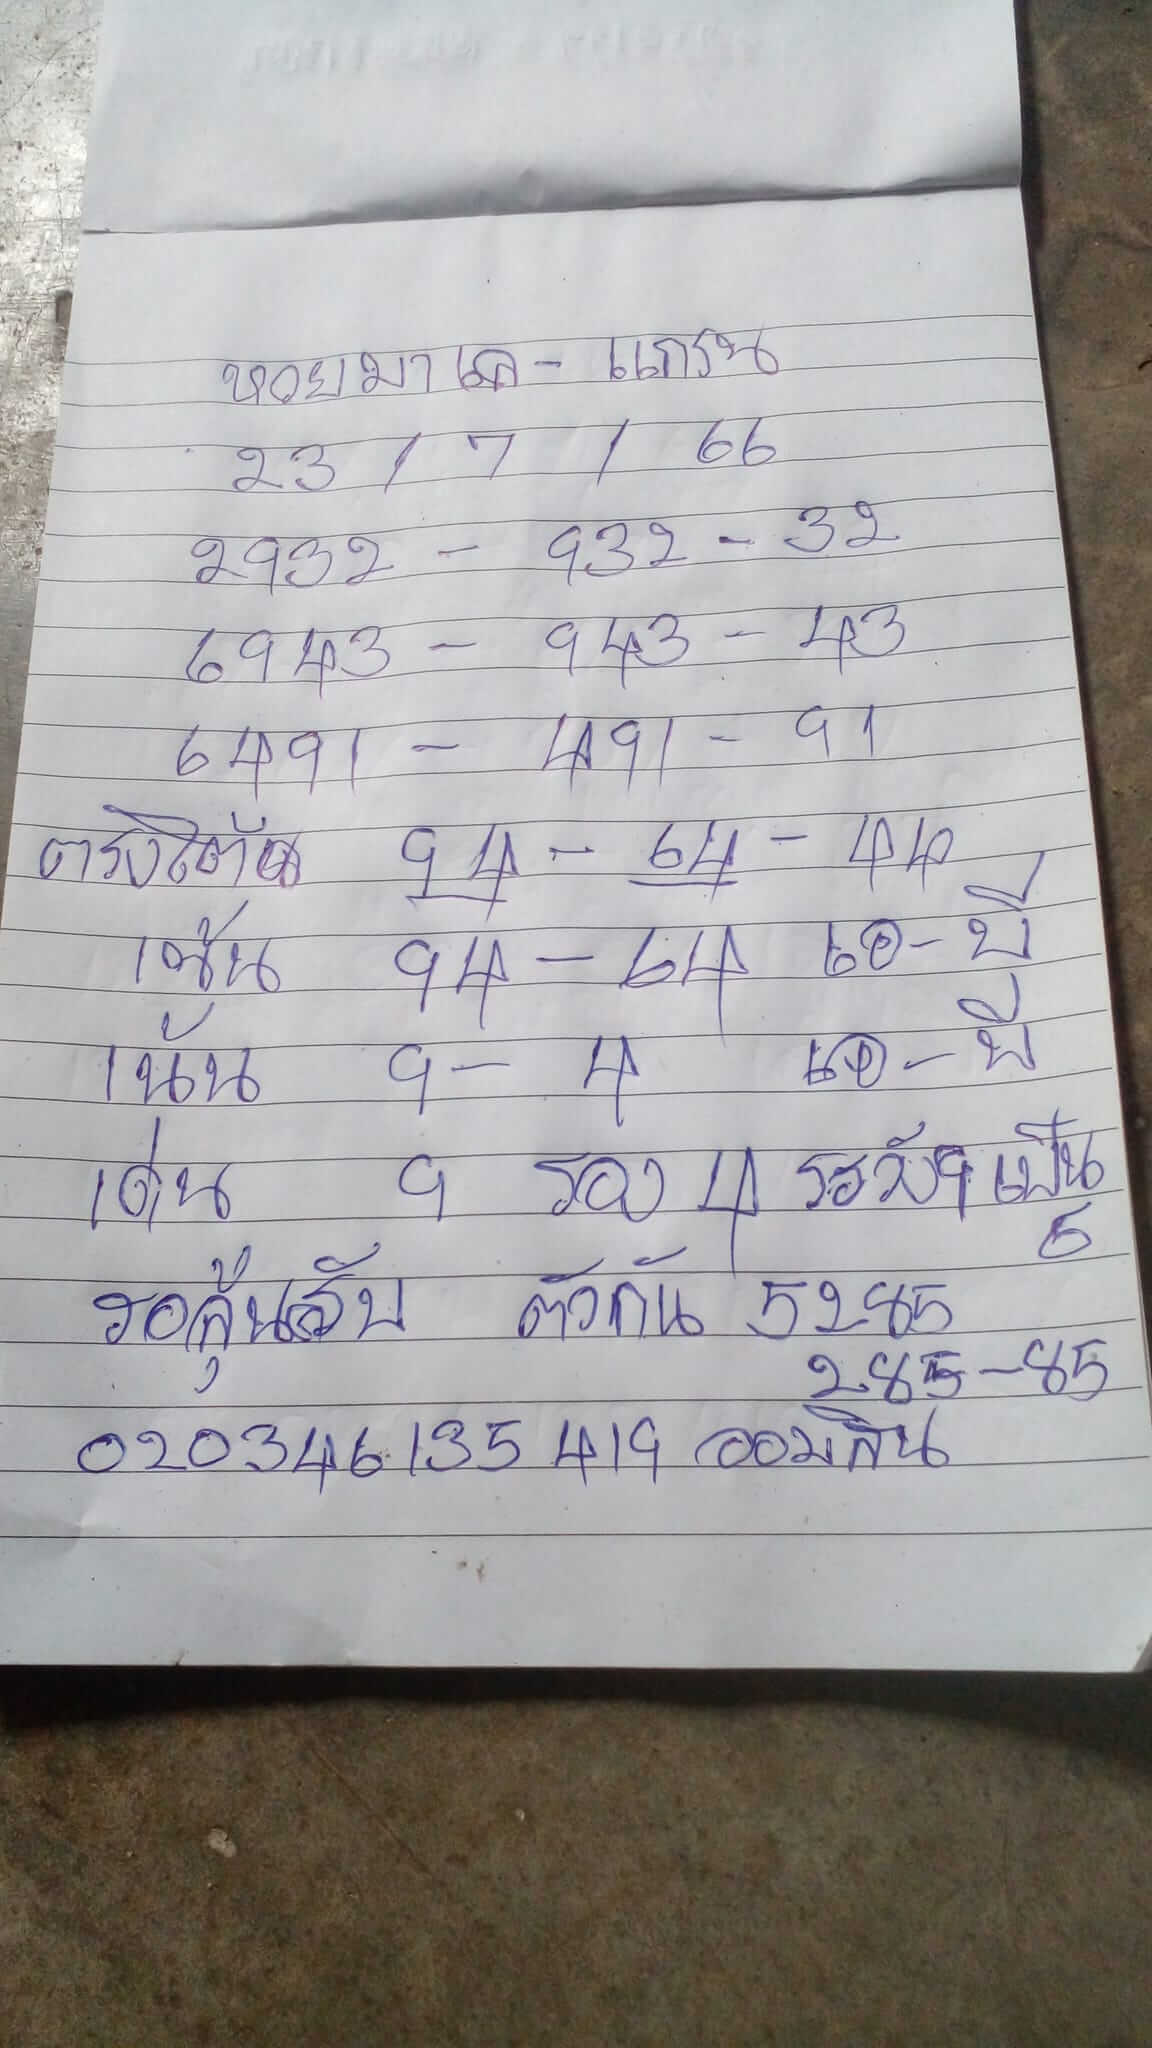 หวยมาเล - แกรน
23 / 7 / 66
2932 - 932 - 32
6943 - 943 - 43
6491 - 491 - 91
ตรงโต๊ด 94 - 64 - 44
เช้น 94 - 64 เอ - บี
เน้น 9 - 4 เอ - บี
เด่น 9 รอง 4 ระวัง 9 เป็น
6
รอลุ้นลับ ตัวกัน 5285
285 - 85
020346135419 ออมสิน